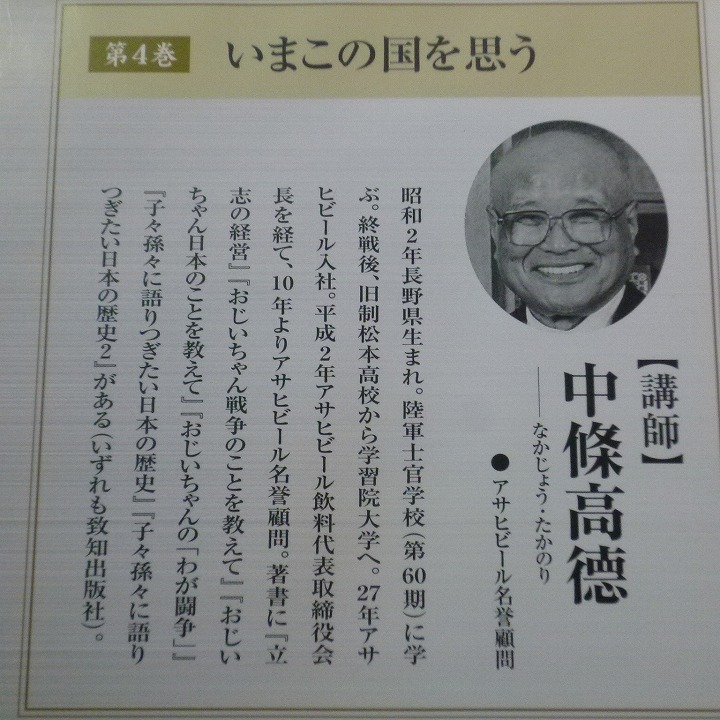 第4巻 いまこの国を思う
【講師】
中條高德
――なかじょう・たかのり
●アサヒビール名誉顧問
昭和2年長野県生まれ。陸軍士官学校(第60期)に学
ぶ。終戦後、旧制松本高校から学習院大学へ。27年アサ
ヒビール入社。平成2年アサヒビール飲料代表取締役会
長を経て、10年よりアサヒビール名誉顧問。著書に『立
志の経営』『おじいちゃん戦争のことを教えて』『おじい
ちゃん日本のことを教えて』『おじいちゃんの「わが闘争」』
『子々孫々に語りつぎたい日本の歴史』『子々孫々に語り
つぎたい日本の歴史2』がある(いずれも致知出版社)。